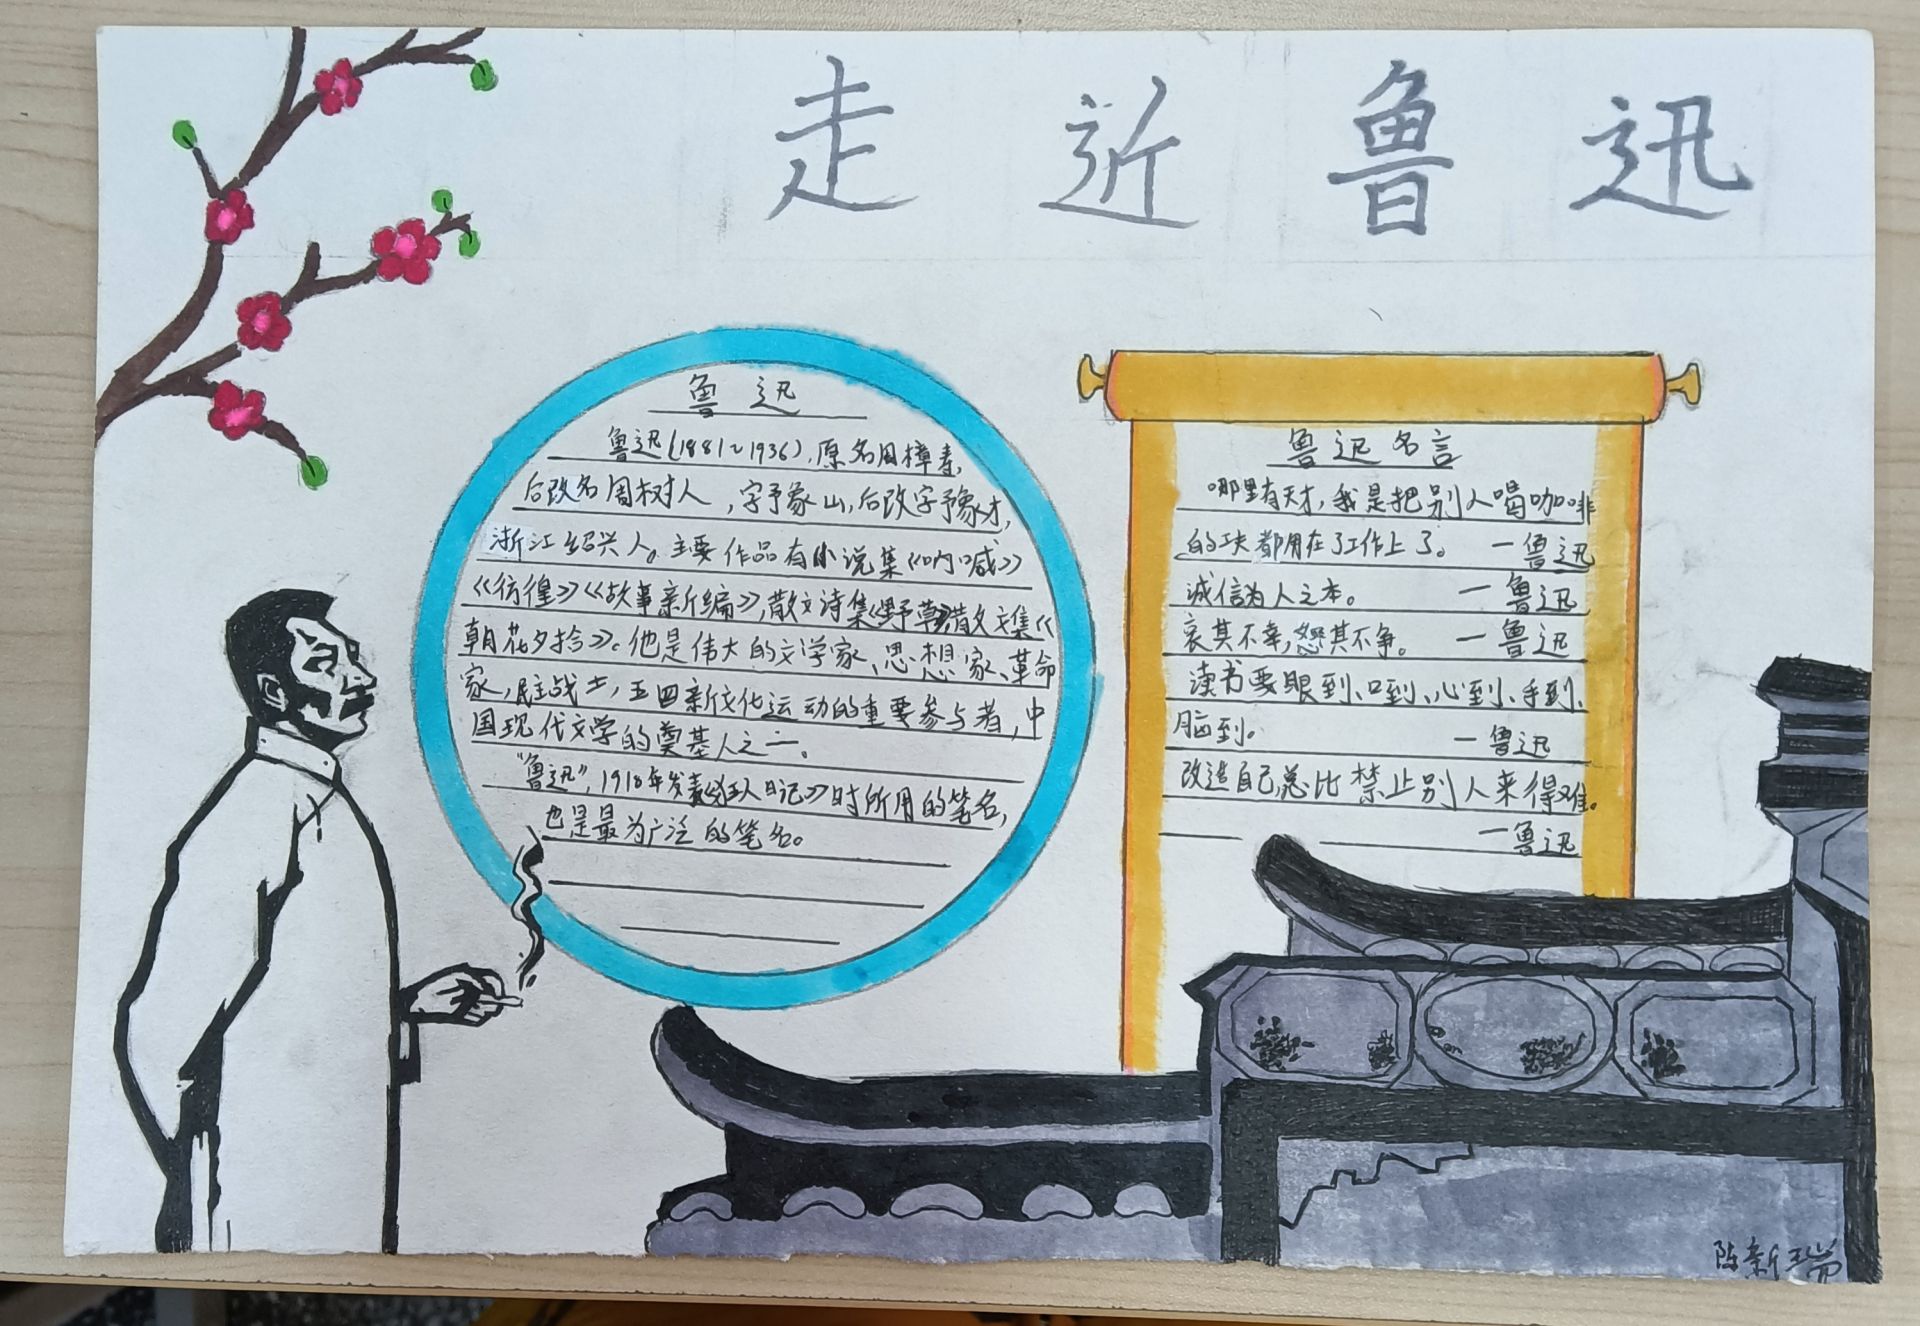 走近鲁迅
鲁迅
鲁迅(1881~1936),原名周樟寿,
后改名周树人,字予象山,后改字予豫才,
浙江绍兴人。主要作品有小说集《呐喊》
《彷徨》《故事新编》,散文诗集《野草》散文集《
朝花夕拾》。他是伟大的文学家、思想家、革命
家,民主战士,五四新文化运动的重要参与者,中
国现代文学的奠基人之一。
“鲁迅”,1918年发表《狂人日记》时所用的笔名,
也是最为广泛的笔名。
鲁迅名言
哪里有天才,我是把别人喝咖啡
的工夫都用在了工作上了。 —鲁迅
诚信为人之本。 —鲁迅
哀其不幸,怒其不争。 —鲁迅
读书要眼到、口到、心到、手到、
脑到。 —鲁迅
改造自己,总比禁止别人来得难。
—鲁迅
陈新瑞